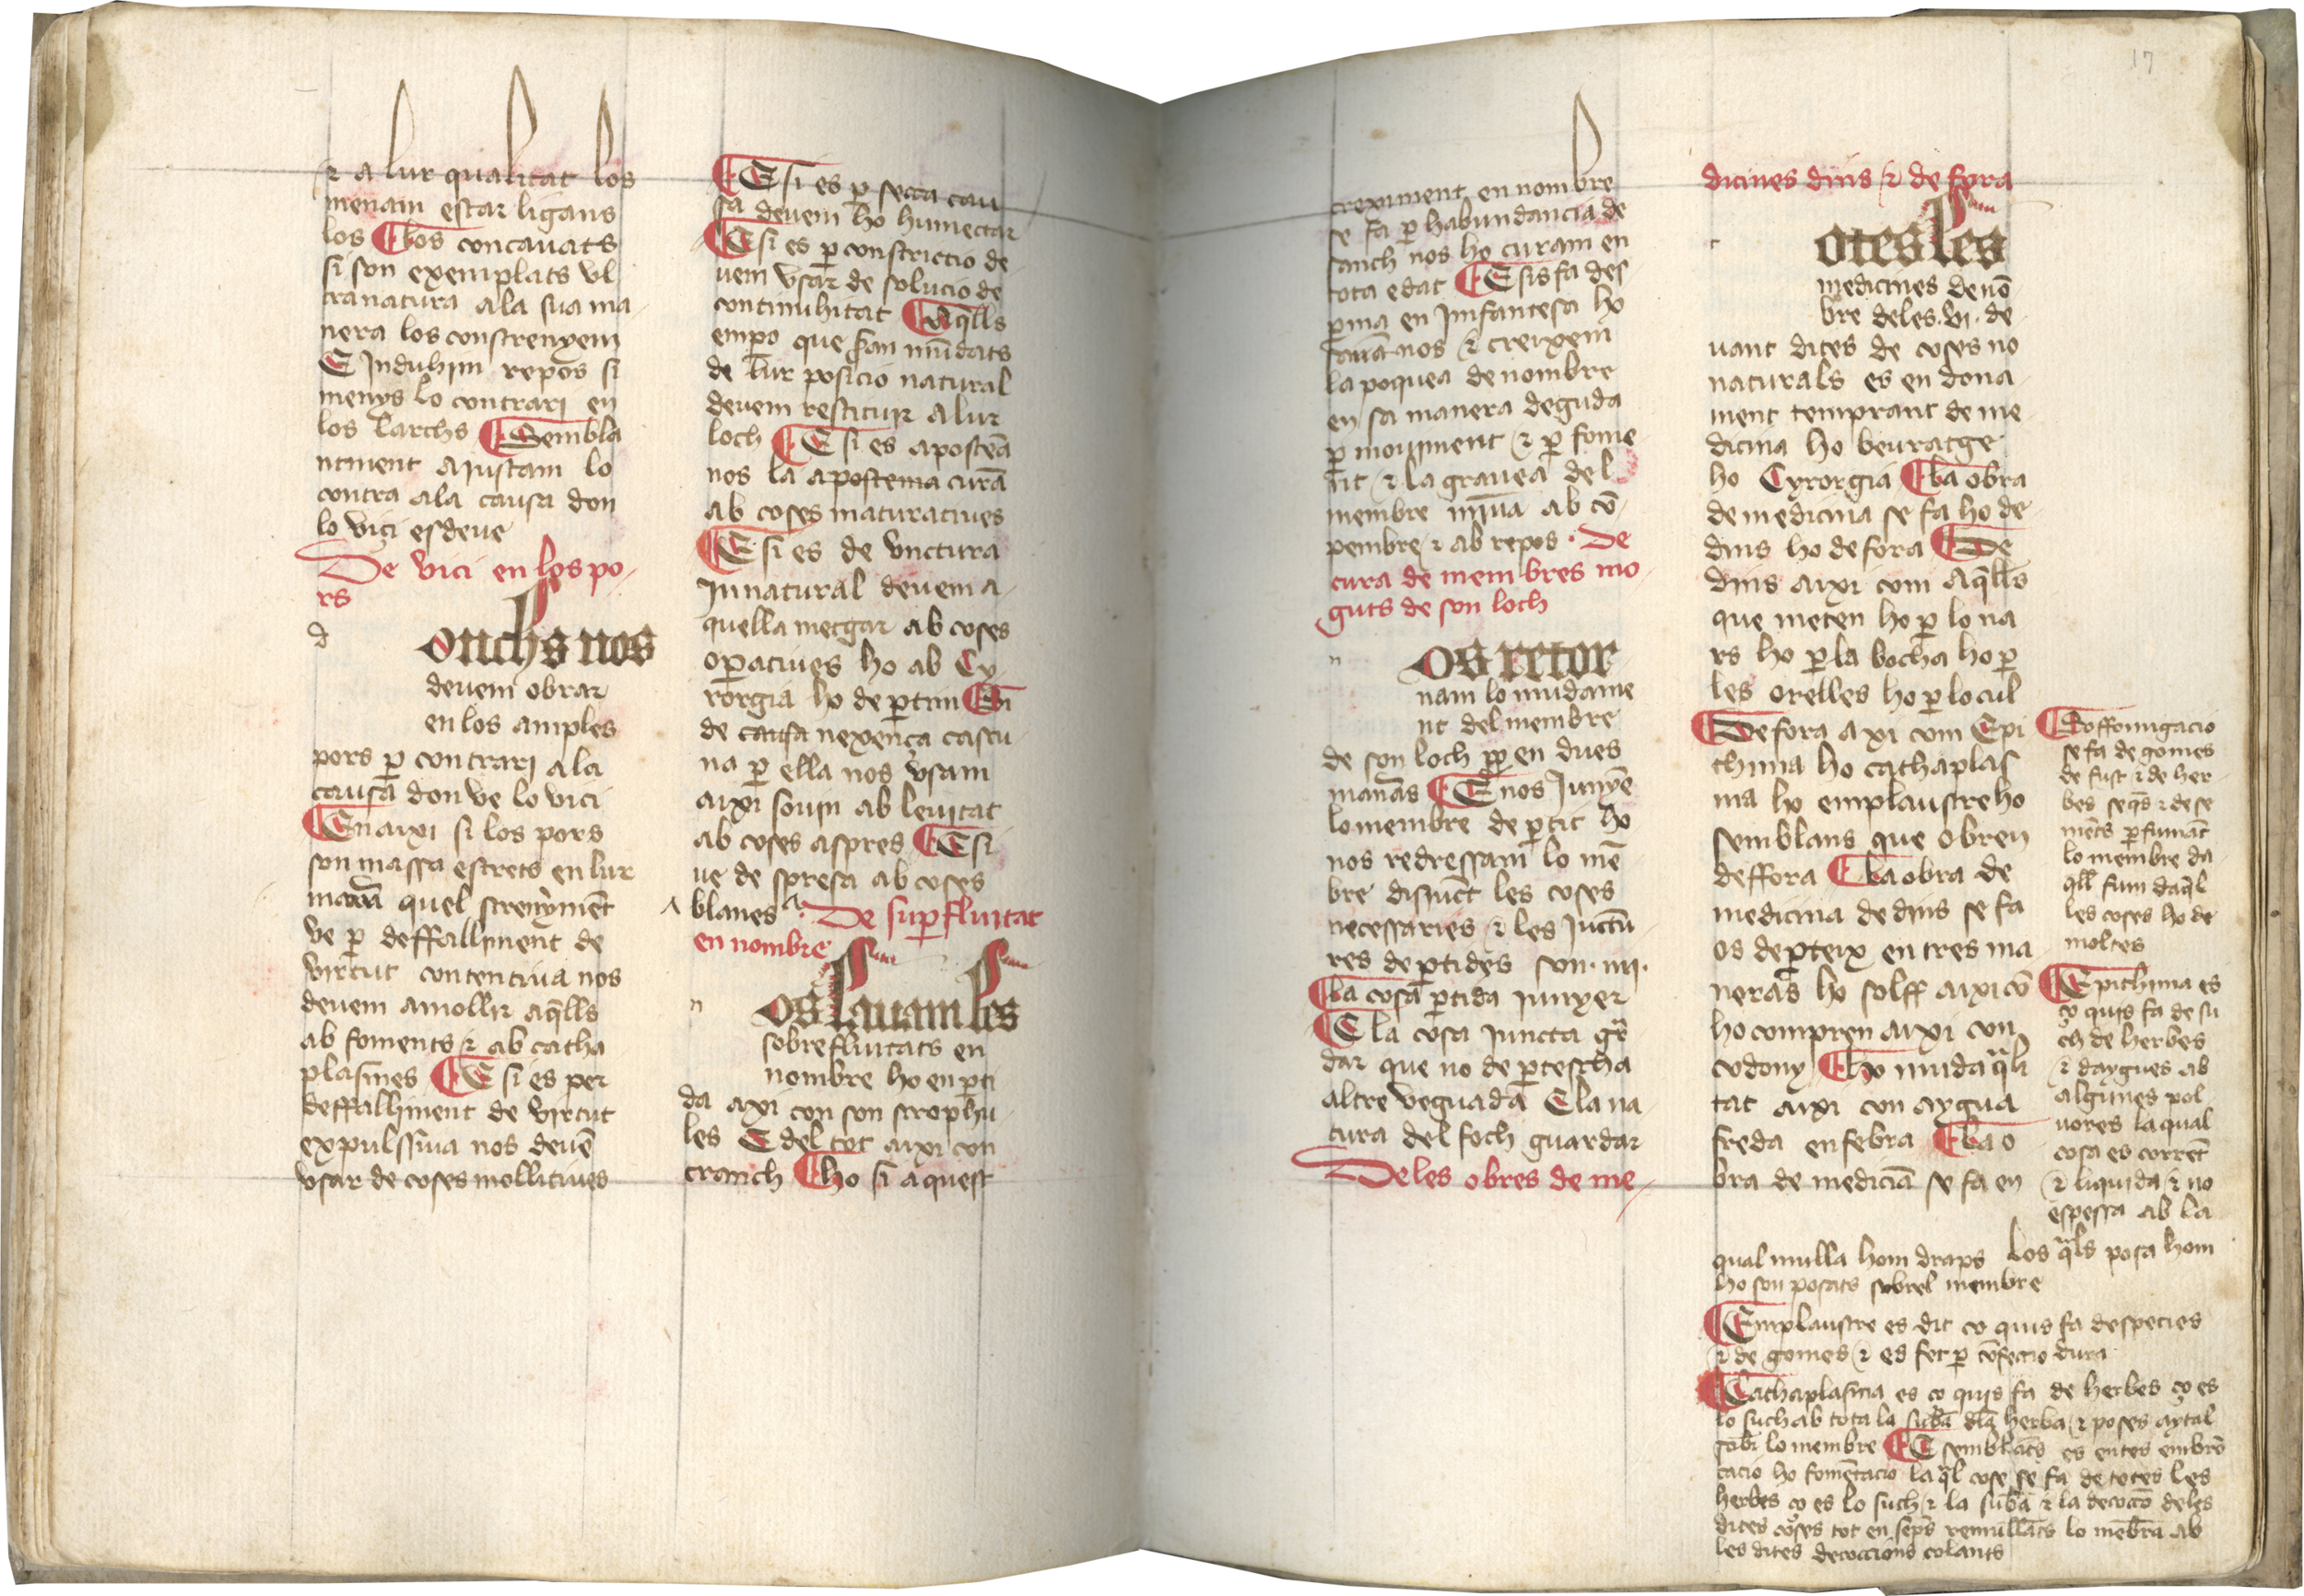 ⁊ a lur qualitat los
menam estar ligans
los ¶ los concauats
si son exemplats vl
tra natura ala sua ma-
nera los constrenyem
E Induhim repos si
menys lo contrari en
los larchs ¶ Sembla
ntment aiustam lo
contra ala causa don
lo vici esdeue
De vici en los po-
rs
d
onchs nos
deuem obrar
en los amples
pors ꝑ contrari a la
causa don ve lo vici
¶ En axi si los pors
son massa estrets en lur
quel strenymēt
ve ꝑ deffalliment de
virtut contentiua nos
deuem amollir aq̄lls
ab foments ⁊ ab catha
plasmes ¶ E si es per
deffalliment de virtut
expulssiua nos deuē
vsar de coses mollitiues
¶ E si es ꝑ secca cau
sa deuem ho humectar
¶ E si es ꝑ constrictio de
uem vsar de solucio de
continuhitat ¶ Aq̄lls
empo que san mudats
de lur posicio natural
deuem restituir a lur
loch ¶ E si es apostēa
nos la apostema curā
ab coses maturatiues
¶ E si es de vnctura
Innatural deuem a-
quella metgar ab coses
oꝑatiues ho ab Cy-
rorgia ho de ꝑtim ¶ Si
de causa nexença cascu-
na ꝑ ella nos vsam
aixi som ab leuitat
ab coses aspres ¶ E si
ue de spresa ab coses
blanes De suꝑfluitat
en nombre
n
os lauam les
sobrefluitats en
nombre ho en ꝑti
da axi con son scrophu-
les E del tot aixi con
cranch ¶ ho si aquest
creximent en nombre
se fa ꝑ habundancia de
sanch nos ho curam en
tota edat ¶ E sis fa des
ꝑma en Imfantesa ho
nos ⁊ creixem
la poquea de nombre
en sa manera deguda
ꝑ mouiment ⁊ ꝑ fome
nt ⁊ la grauea del
membre ab cō-
pembre ⁊ ab repos · De
cura de membres mo-
guts de son loch
n
os retor
nam lo mudame
nt del membre
de son loch en dues
¶ E nos Junyē
lo membre de ꝑtit ho
nos redressam lo mē
bre disiuct les coses
necessaries ⁊ les Juctu-
res de ꝑtides son · iiij ·
¶ la cosa ꝑtida Junyer
¶ E la cosa Juncta
dar que no de ꝑtescha
altre veguada E la na-
tura del foch guardar
De les obres de me-
17
dicines dins ⁊ de fora
t
otes les
medicines de nō
bre deles · vi · de-
uant dites de coses no
naturals es en dona-
ment temprant de me-
dicina ho beuratge
ho Cyrorgia ¶ la obra
de medicina se fa ho de
dins ho de fora ¶ De
dins aixi com aq̄lls
que meten ho ꝑ lo na
rs ho ꝑ la bocha ho ꝑ
les orelles ho ꝑ lo cul
¶ De fora axi com Epi
thima ho cathaplas
ma ho emplaustre ho
semblans que obren
deffora ¶ La obra de
medicina de dins se fa
os deꝑteix en tres ma
neras ho solf aixi cō
ho compren aixi con
codony ¶ ho muda q̄li
tat aixi con aygua
freda en febra ¶ La o
bra de medicīa se fa en
¶ Soffomigacio
se fa de gomes
de fust ⁊ de her-
bes seq̄s ⁊ de se
mēts ꝑfumāt
lo membre da
q̄ll fum daq̄l
les coses ho de
moltes
¶ Epithima es
ço quis fa de su
ch de herbes
⁊ daygues ab
algunes pol-
uores la qual
cosa es corrēt
⁊ liquida ⁊ no
espessa ab la
qual mulla hom draps los q̄ls posa hom
ho son posats sobrel membre
¶ Emplaustre es dit ço quis fa despecies
⁊ de gomes ⁊ es fet ꝑ cōfeccio dura
¶ Cathaplasma es ço quis fa de herbes ço es
lo such ab tota la herba ⁊ poses aytal
sobr lo membre ¶ E semblāts es entes embro
cacio ho fomētacio la q̄l cose se fa de totes les
herbes ço es lo such ⁊ la subā ⁊ la decoccō deles
dites coses tot en remullāts lo mēbra ab
les dites decoccions colants